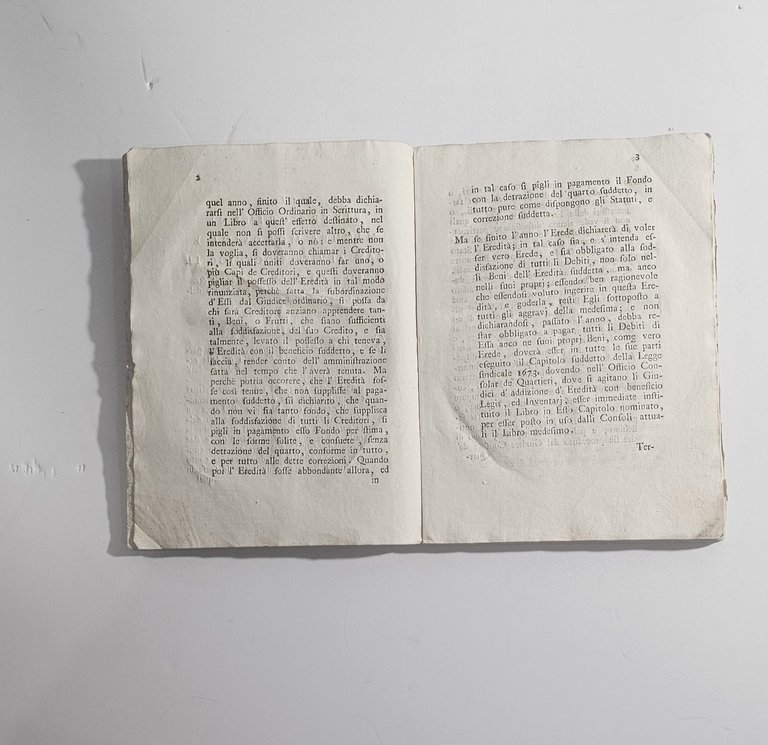 2
quel anno, finito il quale, debba dichia-
rarſi nell' Officio Ordinario in Scrittura, in
un Libro a queſt' effetto deſtinato, nel
quale non ſi poſſi ſcrivere altro, che ſe
intenderà accettarla, o nò: e mentre non
la voglia, ſi doveranno chiamar i Credito-
ri, li quali uniti doveranno far uno, o
più Capi de Creditori, e queſti doveranno
pigliar il poſſeſſo dell' Eredità in tal modo
rinunziata, perchè fatta la ſubordinazione
d'Eſſi dal Giudice ordinario, ſi poſſa da
chi ſarà Creditore anziano apprendere tan-
ti, Beni, o Frutti, che ſiano ſufficienti
alla ſoddisfazione, del ſuo Credito, e ſia
talmente, levato il poſſeſſo a chi teneva,
l'Eredità con il beneficio ſuddetto, e ſe li
faccia, render conto dell' amminiſtrazione
fatta nel tempo che l'averà tenuta. Ma
perchè potria occorere, che l' Eredità foſ-
ſe così tenue, che non ſuppliſſe al paga-
mento ſuddetto, ſii dichiarito, che quan-
do non vi ſia tanto fondo, che ſupplisca
alla ſoddisfazione di tutti li Creditori, ſi
pigli in pagamento eſſo Fondo per ſtima,
con le forme ſolite, e conſuete, ſenza
detrazione del quarto, conforme in tutto,
e per tutto alle dette correzioni. Quando
poi l' Eredità foſſe abbondante allora, ed
in
3
in tal caſo ſi pigli in pagamento il Fondo
con la detrazione del quarto ſuddetto, in
tutto pure come diſpongono gli Statuti, e
correzione ſuddetta.
Ma ſe finito l'anno l'Erede dichiarerà di voler
l'Eredità; in tal caſo ſia, e s'intenda eſ-
ſer vero Erede, e ſia obbligato alla ſod-
disfazione di tutti li Debiti, non ſolo nel-
li Beni dell' Eredità ſuddetta, ma anco
nelli ſuoi proprj; eſſendo ben ragionevole
che eſſendoſi voluto ingerire in queſta Ere-
dità, e goderla, reſti Egli ſottopoſto a
tutti gli aggravj della medeſima; e non
dichiarandoſi, paſſato l'anno, debba re-
ſtar obbligato a pagar tutti li Debiti di
Eſſa anco ne ſuoi proprj Beni, come vero
Erede, doverà eſſer in tutte le ſue parti
eſeguito il Capitolo ſuddetto della Legge
ſindicale 1673. dovendo nell' Officio Con-
ſolar de' Quartieri, dove ſi agitano li Giu-
dici d' addizione d' Eredità con beneficio
Legis, ed Inventarj, eſſer immediate inſti-
tuito il Libro in Eſſo Capitolo nominato,
per eſſer poſto in uſo dalli Conſoli attua-
li il Libro medeſimo.
Ter-